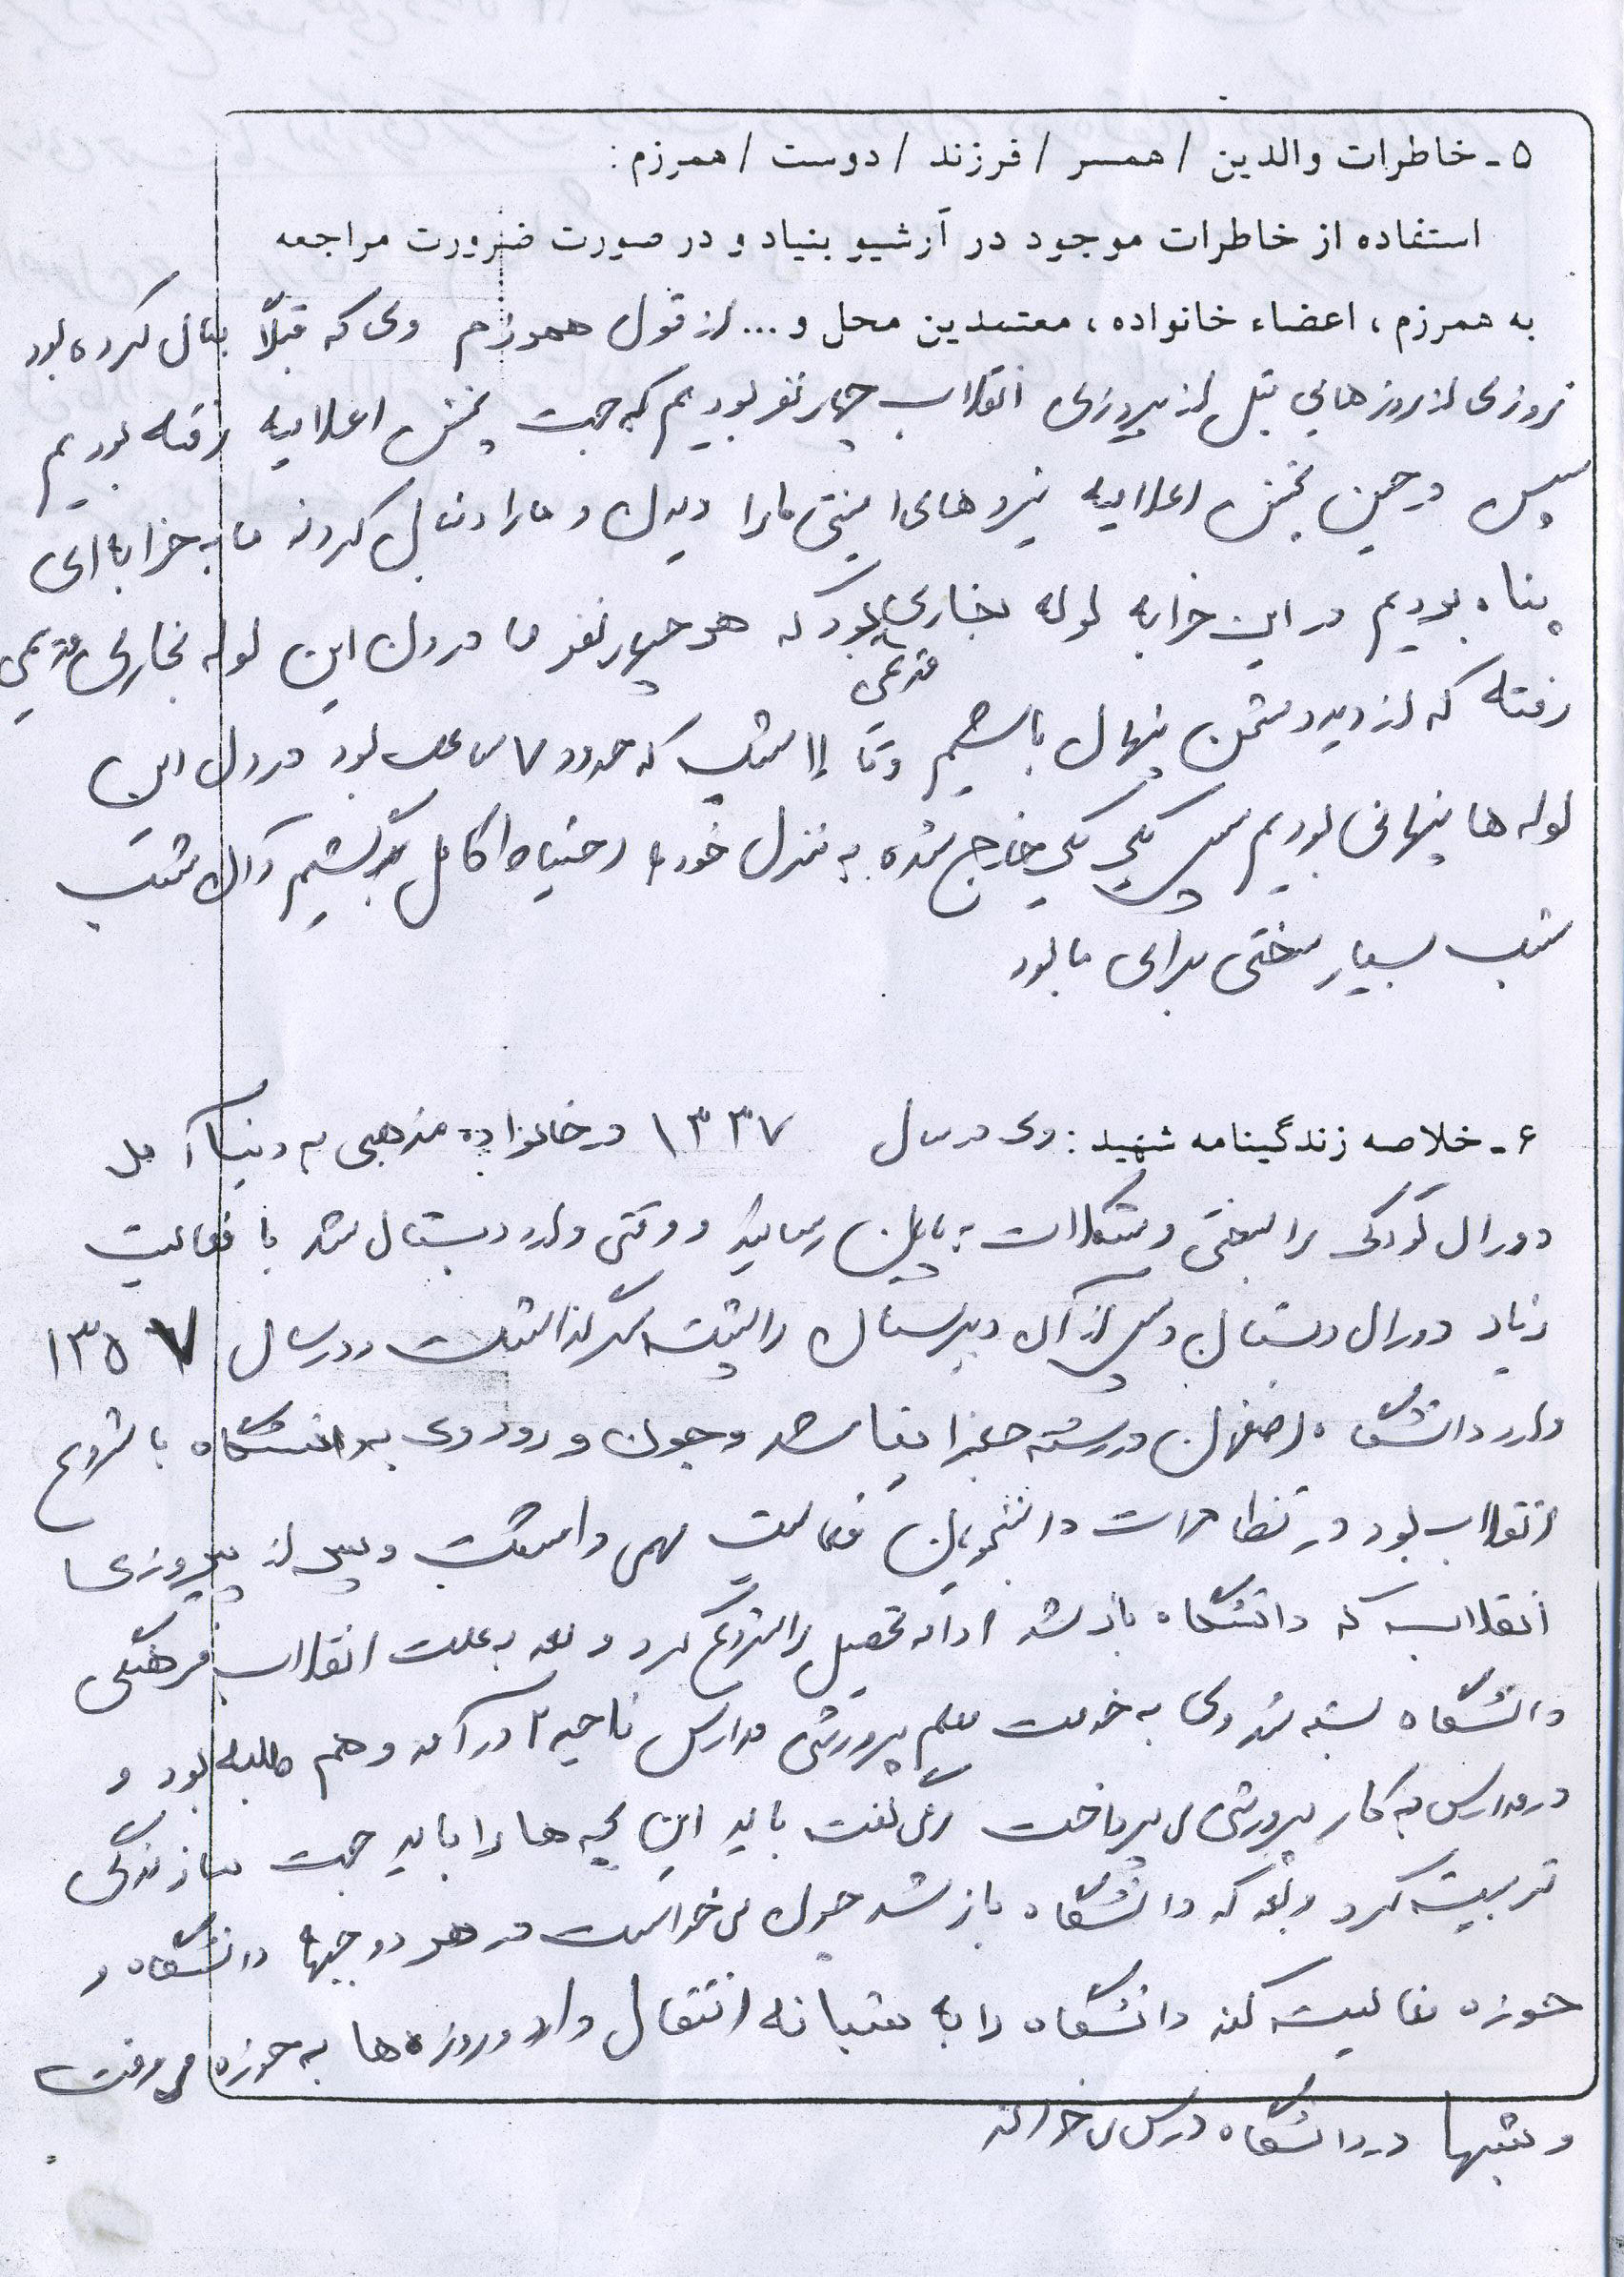 ۵ - خاطرات والدین / همسر / فرزند / دوست / همرزم :
استفاده از خاطرات موجود در آرشیو بنیاد و در صورت ضرورت مراجعه
به همرزم ، اعضاء خانواده ، معتمدین محل و ... از قول همرزم وی که قبلاً بیان کرده بود
روزی از روزهایی قبل از پیروزی انقلاب چهار نفر بودیم که جهت پخش اعلامیه رفته بودیم
سپس در حین پخش اعلامیه نیروهای امنیتی ما را دیدن و ما را دنبال کردند ما به خرابه‌ای
پناه بردیم در این خرابه لوله بخاری قدیمی بود که هر چهار نفر ما درون این لوله بخاری قدیمی
رفته که از دید دشمن پنهان باشیم و تا ۱۱ شب که حدود ۷ ساعت بود درون این
لوله ها پنهانی بودیم سپس یکی یکی خارج شده به منزل خود با احتیاط کامل برگشیم و آن شب
شب بسیار سختی برای ما بود
۶ - خلاصه زندگینامه شهید : وی در سال ۱۳۳۷ در خانواده مذهبی به دنیا آمد
دوران کودکی را بسختی و مشکلات به پایان رسانید و وقتی وارد دبستان شد با فعالیت
زیاد دوران دبستان و پس از آن دبیرستان را پشت سر گذاشت و در سال ۱۳۵۷
وارد دانشگاه اصفهان در رشته جغرافیا شد و چون ورود وی به دانشگاه با شروع
انقلاب بود در تظاهرات دانشجویان فعالیت مهمی داشت و پس از پیروزی
انقلاب که دانشگاه باز شد ادامه تحصیل را شروع کرد و بعد به علت انقلاب فرهنگی
دانشگاه بسته شد وی به خدمت معلم پرورشی مدارس ناحیه ۲ در آمد و هم طلبه بود و
در مدارس به کار پرورشی می پرداخت و می گفت باید این بچه ها را باید جهت سازندگی
تربیت کرد و بعد که دانشگاه باز شد چون می خواست در هر دو جبهه دانشگاه و
حوزه فعالیت کند دانشگاه را به شبانه انتقال داد و روزه ها به حوزه می رفت
و شبها در دانشگاه درس می خواند